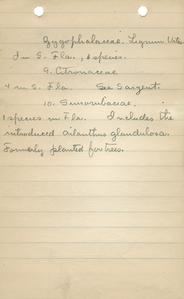 Zygophalaceae. Lignum Vitae
3 in S. Fla., 6 species.
9. Citronaceae
4 in S. Fla. See Sargent.
10. Simorubaceae.
1 species in Fla. Includes the
introduced ailanthus glandulosa.
Formerly planted for trees.